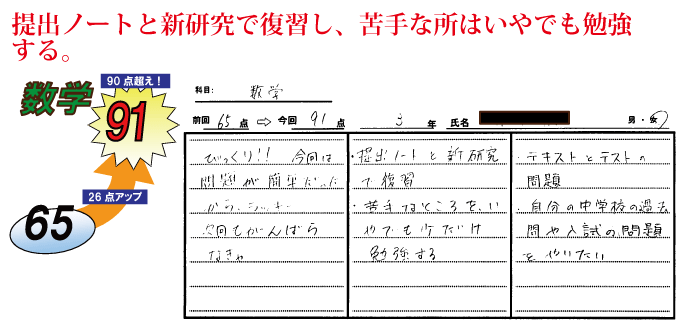 提出ノートと新研究で復習し、苦手な所はいやでも勉強
する。
数学
90点超え！
91
26点アップ
65
科目： 数学
前回 65 点 ⇨ 今回 91 点 3 年 氏名 男・女
びっくり!! 今回は
問題が簡単だった
から、ラッキー
次回もがんばら
なきゃ
・提出ノートと新研究
で復習
・苦手なところを、い
やでも少だけ
勉強する
・テキストとテストの
問題
・自分の中学校の過去
問や入試の問題
をやりたい